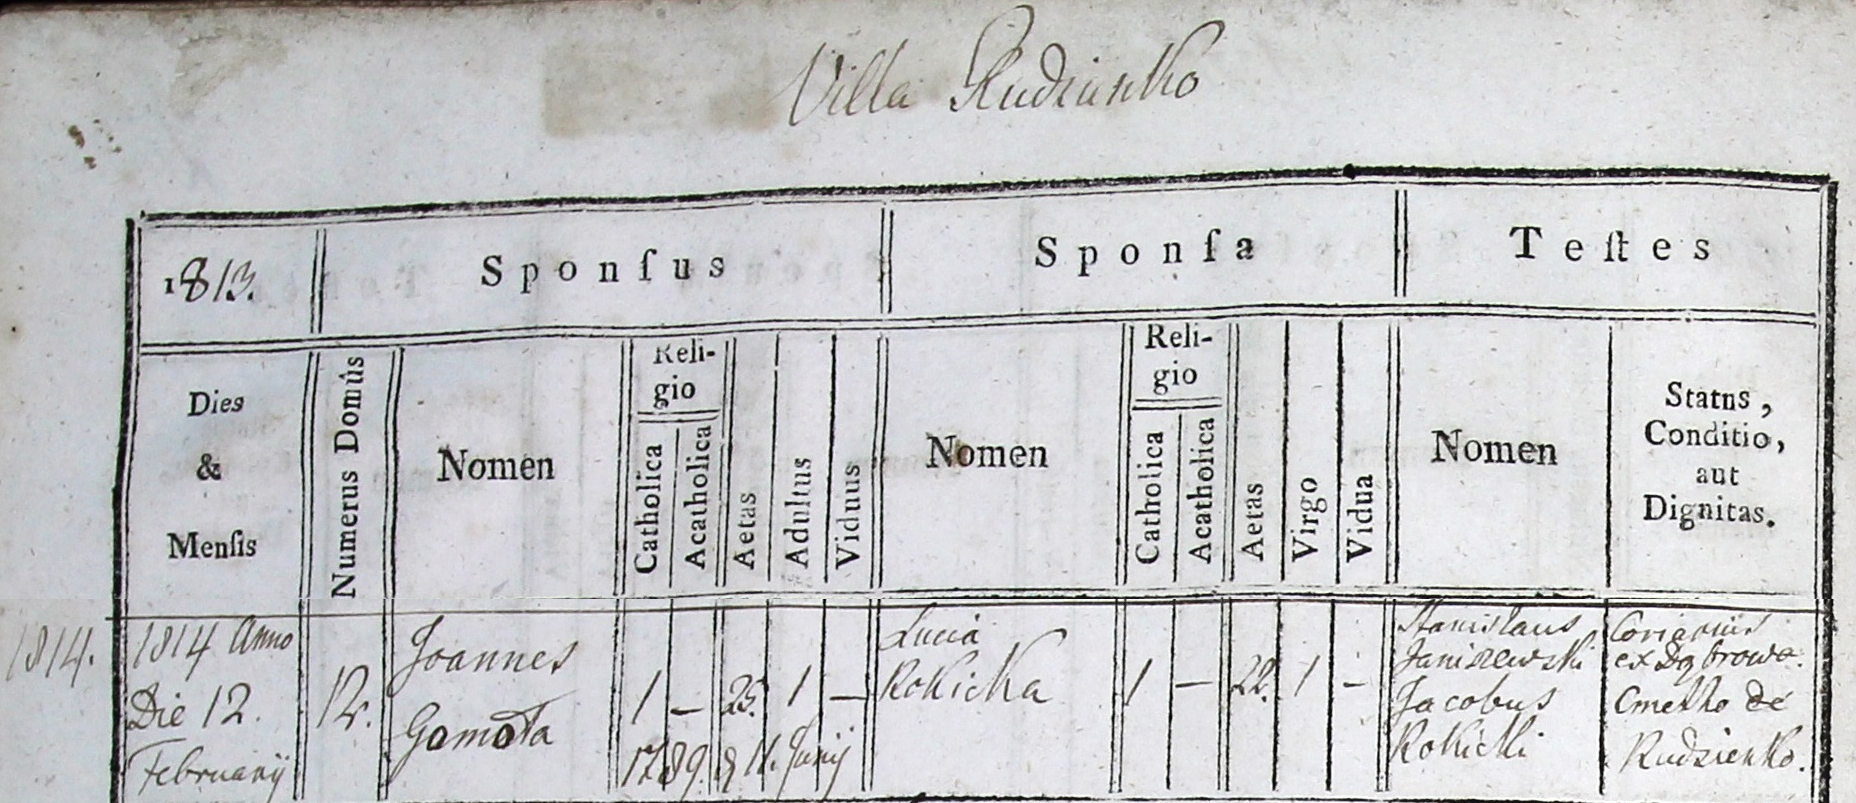 Villa Rudzienko
1813.
Sponſus
Sponſa
Teſtes
Dies
&
Menſis
Numerus Domûs
Nomen
Reli-
gio
Catholica
Acatholica
Aetas
Adultus
Viduus
Nomen
Reli-
gio
Catholica
Acatholica
Aetas
Virgo
Vidua
Nomen
Statns,
Conditio,
aut
Dignitas.
1814.
1814 Anno
Die 12.
Februarij
12.
Joannes
Gamota
1
—
25.
1
—
1789. 11. Junij
Lucia
Rokicka
1
—
22.
1
—
Stanislaus
Janiszewski
Jacobus
Rokicki
ex Dąbrowa.
Cmetho de
Rudzienko.